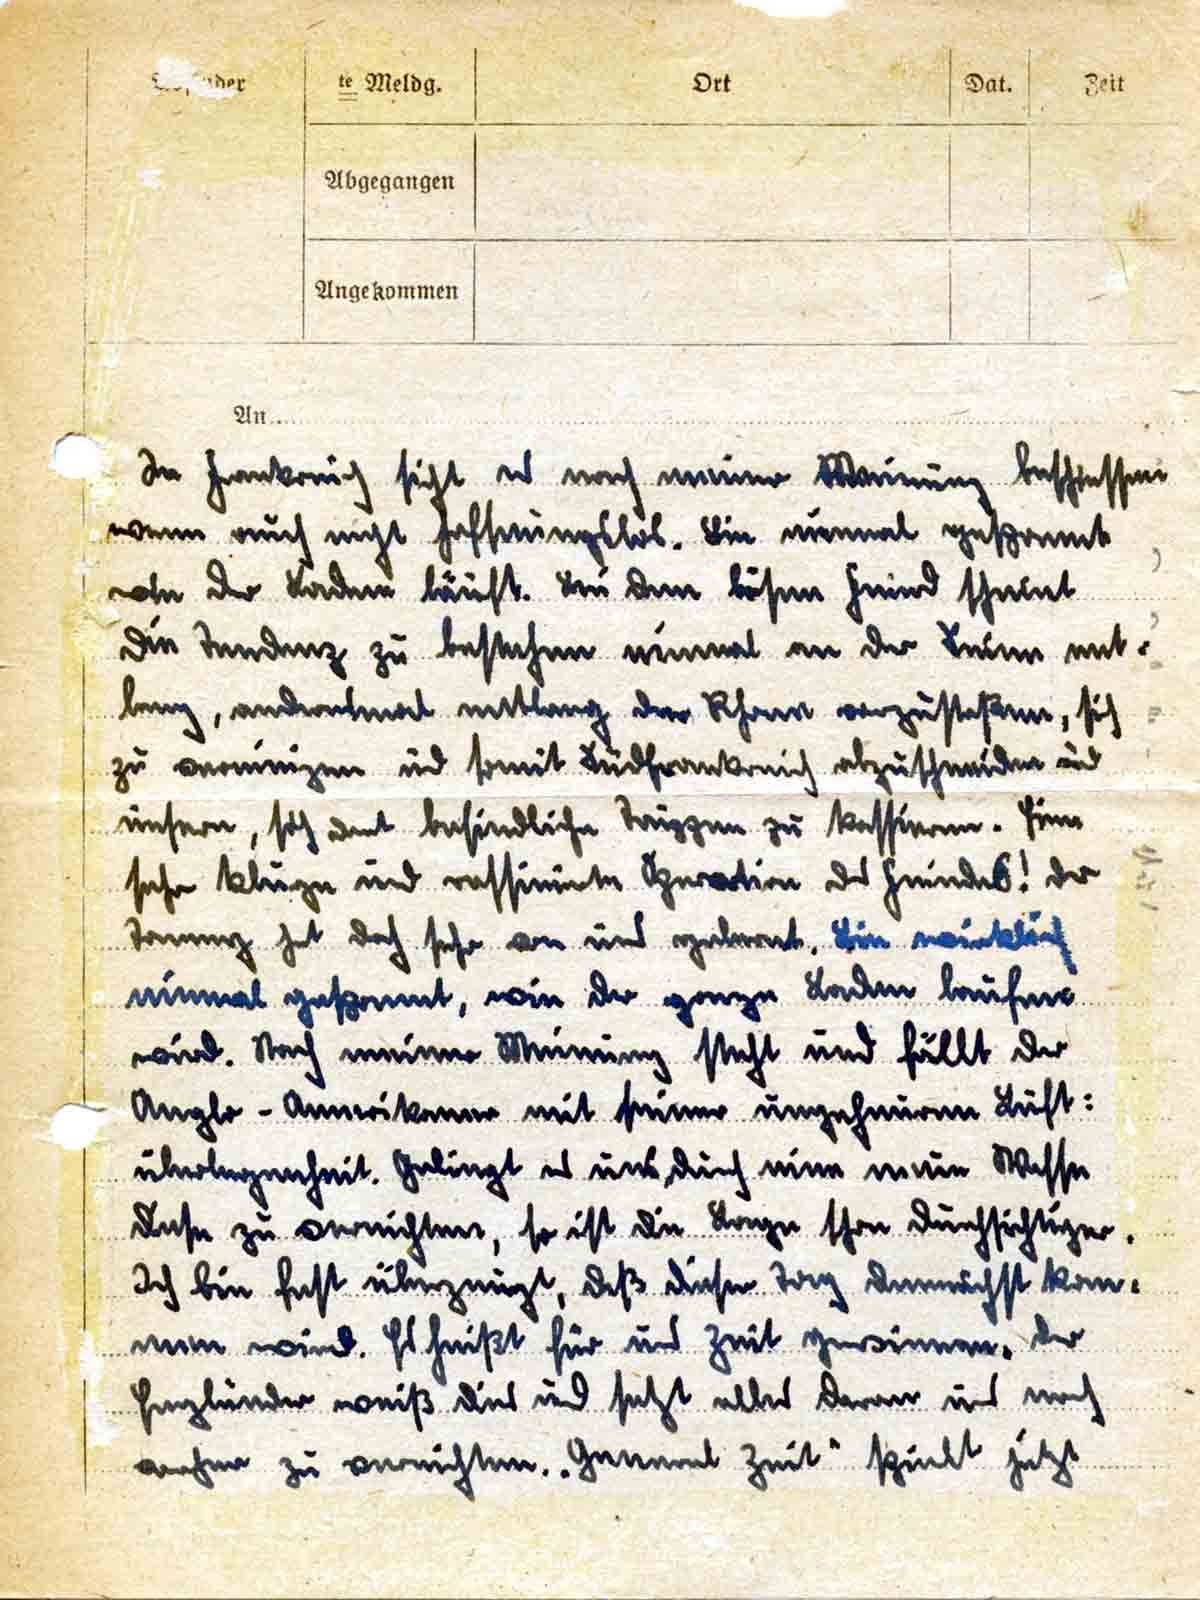 te Meldg. Ort Dat. Zeit
Abgegangen
Angekommen
An
In Frankreich sieht es nach meiner Meinung beschissen
wenn auch nicht hoffnungslos. Bin einmal gespannt
wie der Laden läuft. Bei dem bösen Feind scheint
die Tendenz zu bestehen einmal an der Seine ent-
lang, andermal entlang der Rhone vorzustoßen, sich
zu vereinigen und somit Südfrankreich abzuschneiden und
unsere, sich dort befindliche Truppen zu kassieren. Eine
sehr kluge und raffinierte Operation des Feindes! Der
Tommy hat doch sehr von uns gelernt. Bin wirklich
einmal gespannt, wie der ganze Laden laufen
wird. Nach meiner Meinung steht und fällt der
Anglo-Amerikaner mit seiner ungeheuren Luft:
überlegenheit. Gelingt es uns, durch eine neue Waffe
diese zu vernichten, so ist die Lage schon durchsichtiger.
Ich bin fest überzeugt, daß dieser Tag demnächst kom-
men wird. Es heißt für uns Zeit gewinnen. Der
Engländer weiß dies und setzt alles daran uns noch
vorher zu vernichten. „General Zeit" spielt jetzt